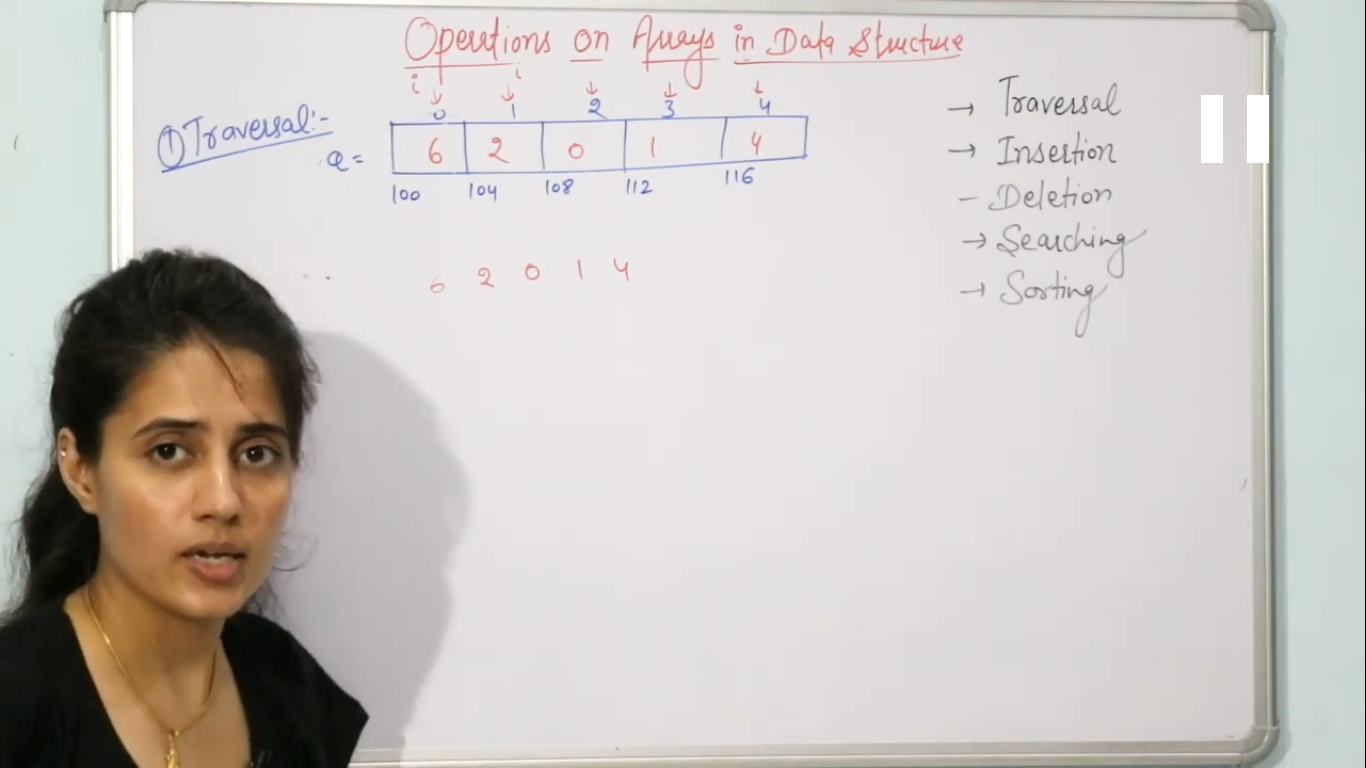 Operations on Arrays in Data Structure
i i
0 1 2 3 4
① Traversal:-
a = 6 2 0 1 4
100 104 108 112 116
6 2 0 1 4
→ Traversal
→ Insertion
- Deletion
→ Searching
→ Sorting